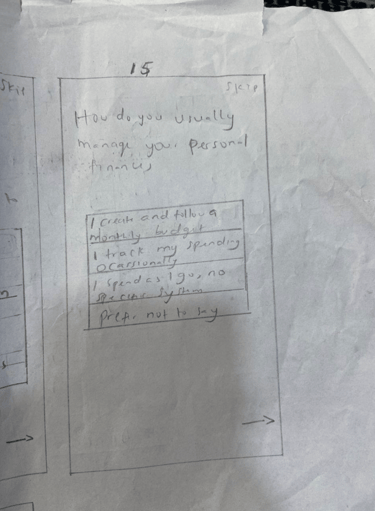 15
Skip
Skip
How do you usually
manage your personal
finances
I create and follow a
monthly budget
I track my spending
ocassionally
I spend as I go, no
specific system
Prefer not to say